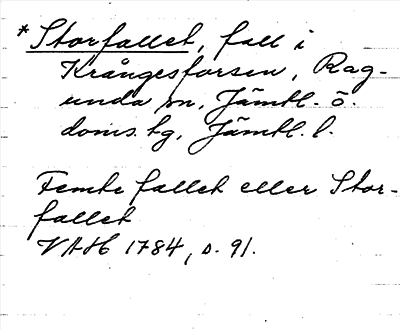 *Storfallet, fall i
Krångesforsen, Rag-
unda sn, Jämtl. ö.
doms. tg, Jämtl. l.
Femte fallet eller Stor-
fallet
VAH 1784, s. 91.